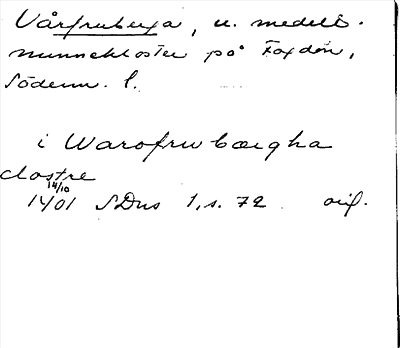 Vårfruberga, u. medelt.
nunnekloster på Fogdön,
Söderm. l.
i Warofru bærgha
clostre
14/10
1401 SDns 1, s. 72 orig.